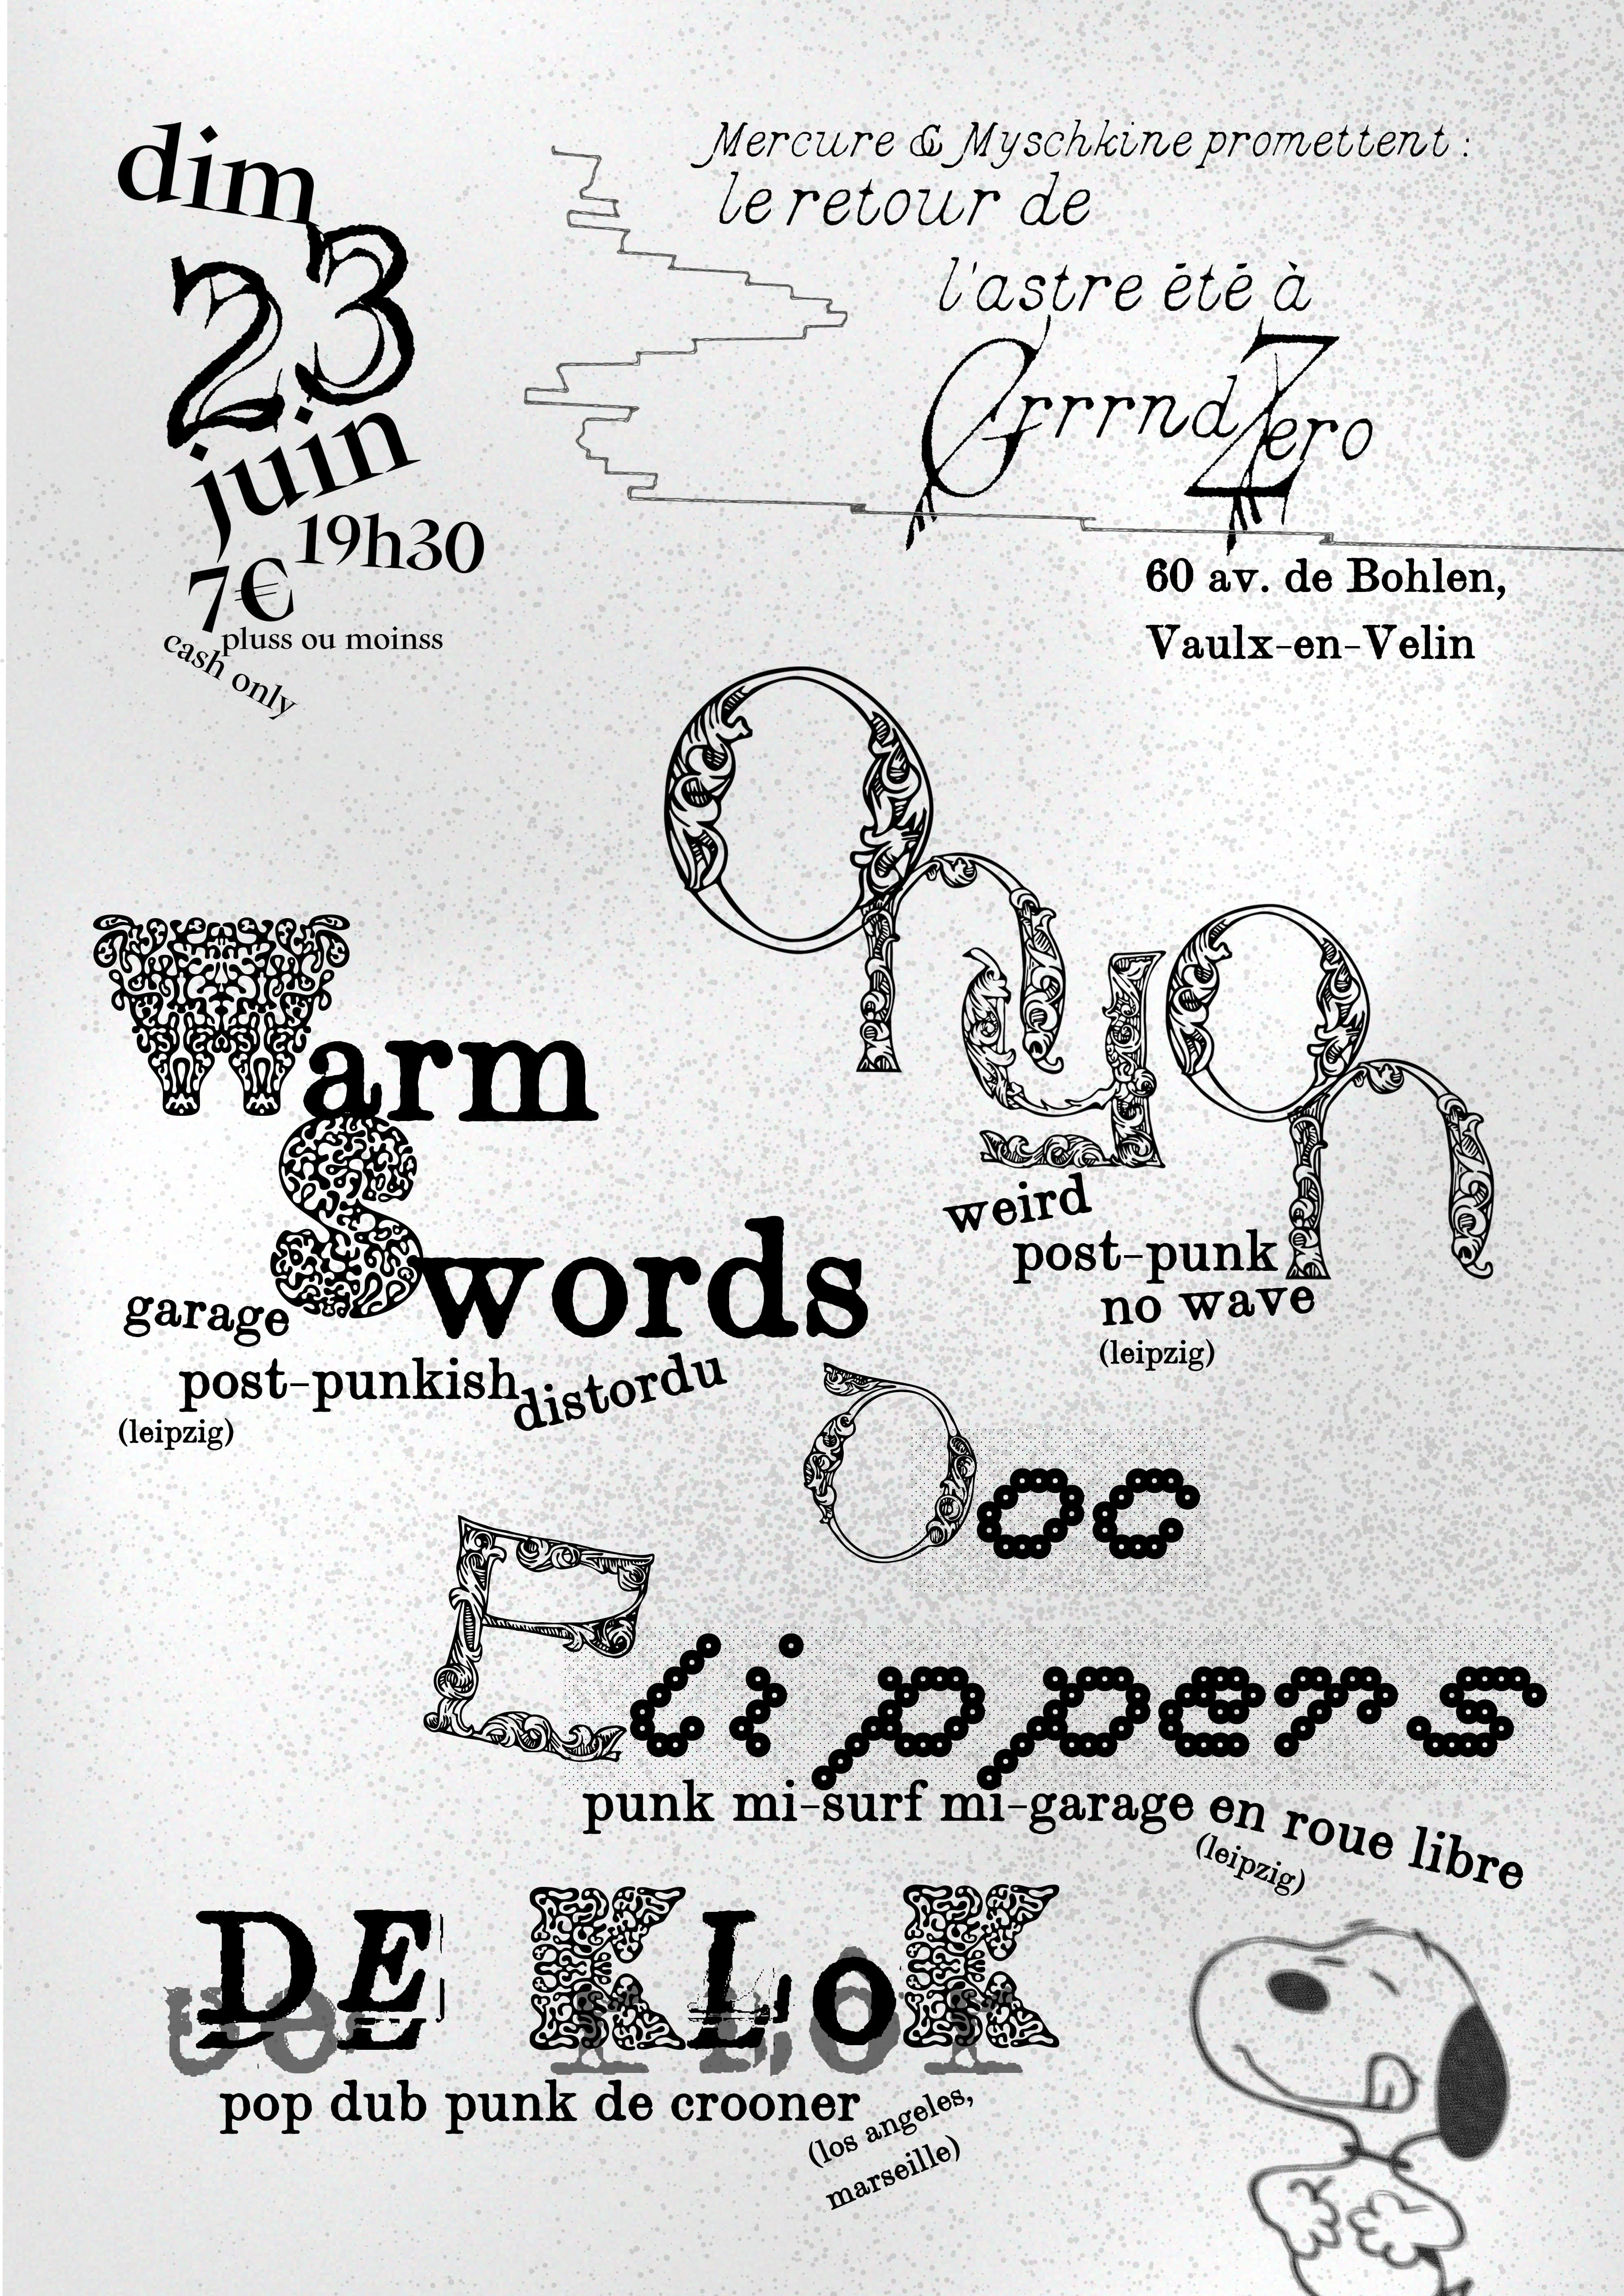 dim
23
juin
19h30
7€
pluss ou moinss
cash only
Mercure & Myschkine promettent :
le retour de
l'astre été à
Grrrnd Zero
60 av. de Bohlen,
Vaulx-en-Velin
Onyon
weird
post-punk
no wave
(leipzig)
Warm
8
words
garage
post-punkish
distordu
(leipzig)
Ooc
Elippers
punk mi-surf mi-garage en roue libre
(leipzig)
DE KLOK
pop dub punk de crooner
(los angeles,
marseille)